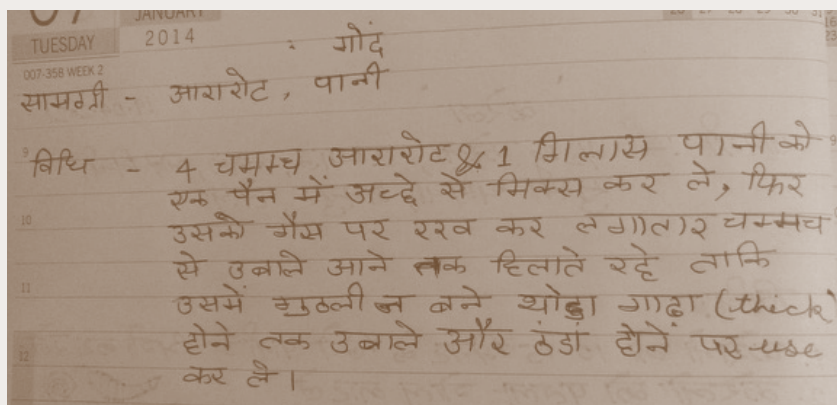 07 JANUARY
TUESDAY 2014
: गोदं
007-358 WEEK 2
सामग्री - आरारोट, पानी
9 विधि - 4 चमम्च आरारोट & 1 गिलास पानी को
एक पैन में अच्छे से मिक्स कर ले, फिर
10 उसको गैस पर रख कर लगातार चम्मच
से उबाले आने तक हिलाते रहे ताकि
11 उसमें गुठली न बने थोडा गाढा (thick)
होने तक उबाले और ठंडां होनें पर use
12 कर ले।